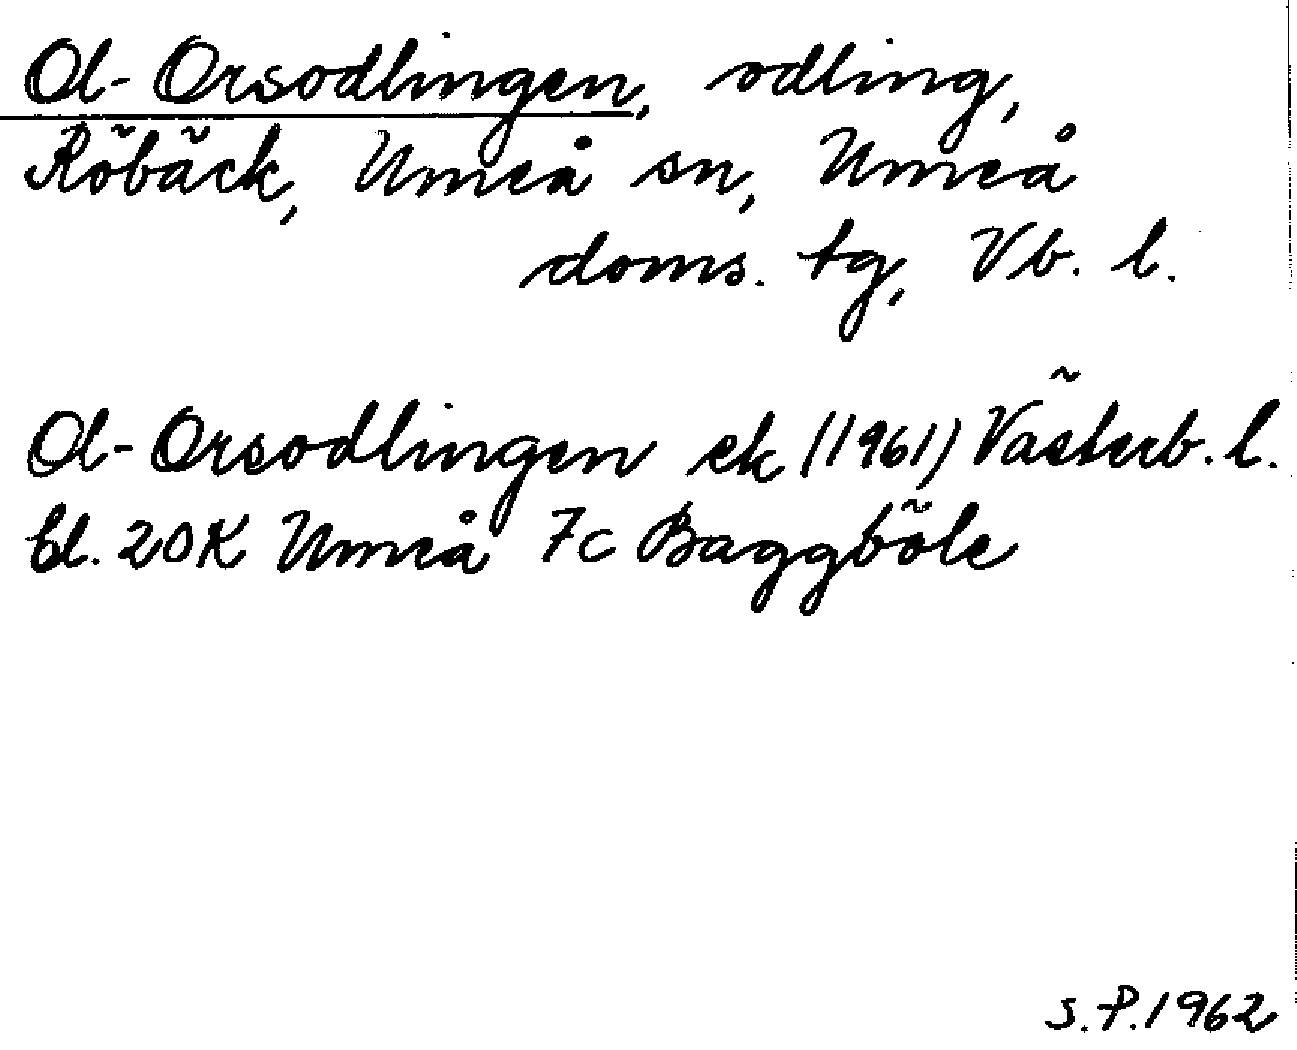 Ol-Orsodlingen, odling,
Röbäck, Umeå sn, Umeå
doms. tg, Vb. l.
Ol-Orsodlingen ek (1961) Västerb. l.
bl. 20K Umeå 7c Baggböle
S.P. 1962